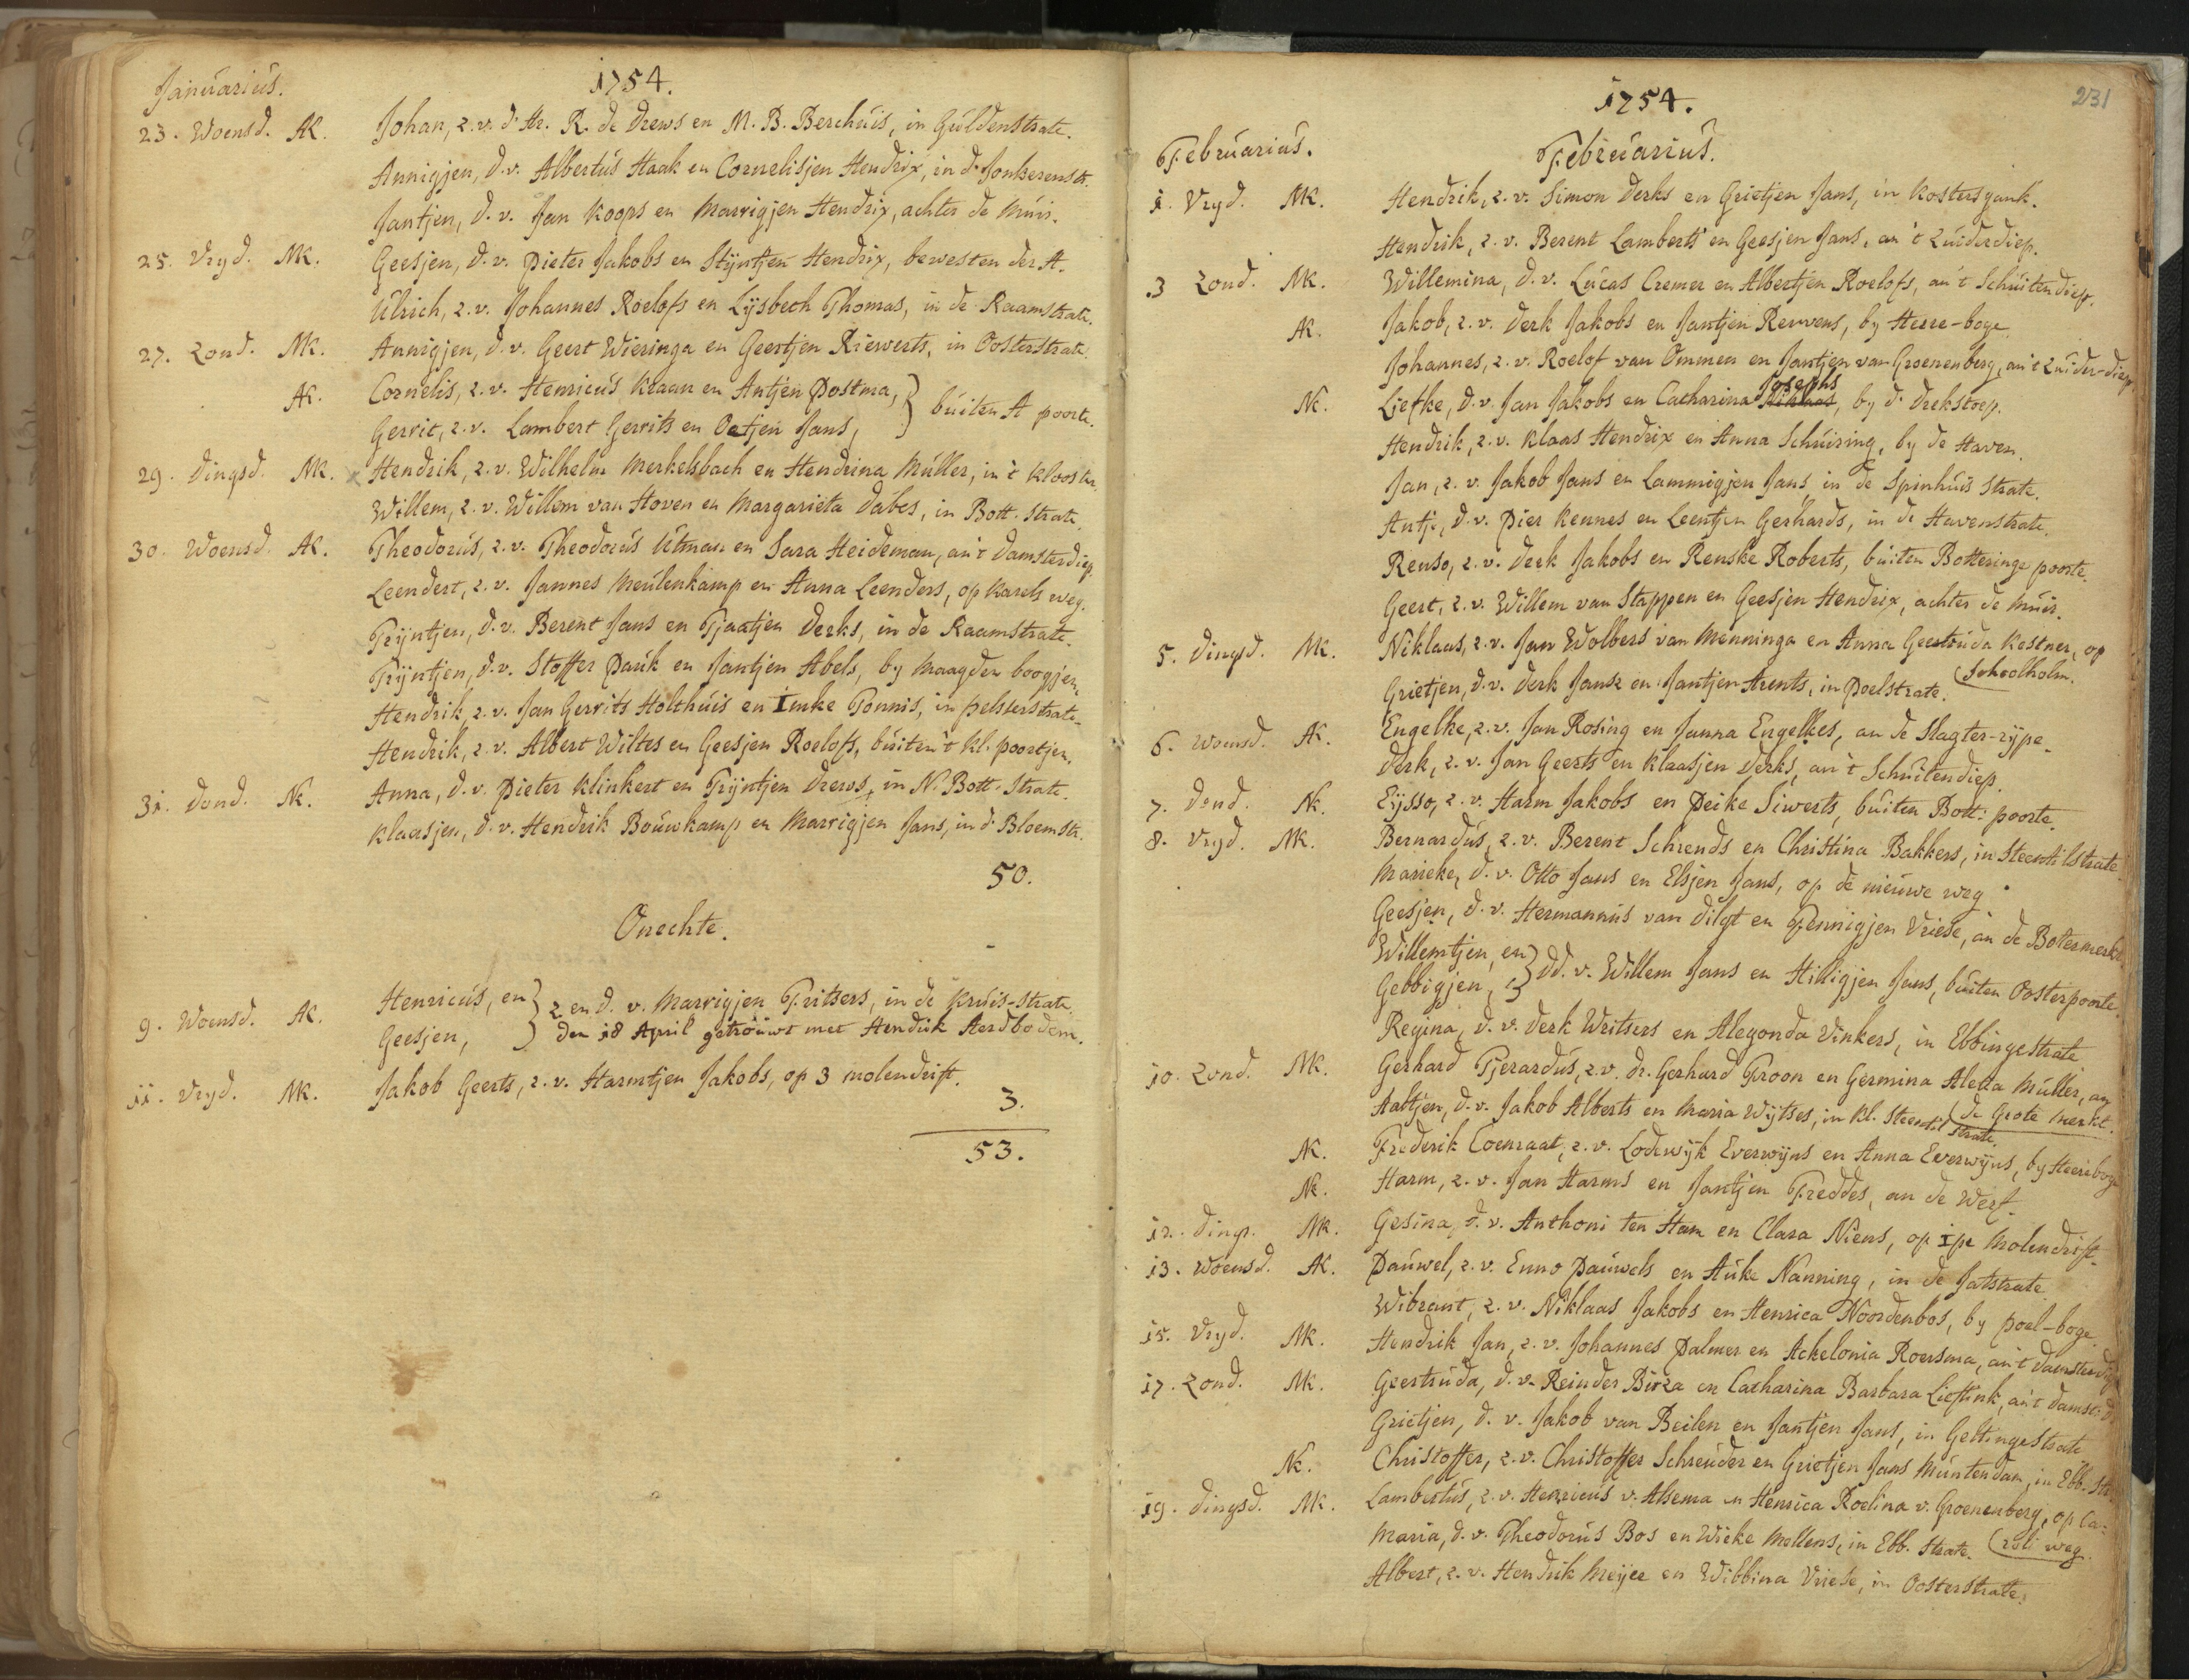 Januarius.
1754.
23. Woensd. AK. Johan, z.v. d' Hr. R. de Drews en M. B. Berchuis, in Guldenstrate.
Annigjen, d.v. Albertus Haak en Cornelisjen Hendrix, in d' Jonkerenstr.
Jantjen, d.v. Jan Koops en Marrigjen Hendrix, achter de Muir.
25. Vryd. MK. Geesjen, d.v. Pieter Jakobs en Stijntjen Hendrix, bewesten der A.
Ulrich, z.v. Johannes Roelofs en Lijsbeth Thomas, in de Raamstrate.
27. Zond. MK. Annigjen, d.v. Geert Wieringa en Geertjen Riewerts, in Oosterstrate.
AK. Cornelis, z.v. Henricus Kraan en Antjen Postma, } buiten A poorte.
Gerrit, z.v. Lambert Gerrits en Oetjen Jans,
29. Dingsd. MK. x Hendrik, z.v. Wilhelm Merkelsbach en Hendrina Muller, in 't Klooster.
Willem, z.v. Willem van Hoven en Margarieta Dabes, in Bott. Strate.
30. Woensd. AK. Theodorus, z.v. Theodorus Utman en Sara Heideman, an 't Damsterdiep.
Leendert, z.v. Jannes Meulenkamp en Anna Leenders, op Karels weg.
Trijntjen, d.v. Berent Jans en Tjaatjen Derks, in de Raamstrate.
Trijntjen, d.v. Stoffer Pauk en Jantjen Abels, by Maagden boogjen.
Hendrik, z.v. Jan Gerrits Holthuis en Imke Tonnis, in pelsterstrate.
Hendrik, z.v. Albert Wiltes en Geesjen Roelofs, buiten 't kl. poortjen.
31. Dond. NK. Anna, d.v. Pieter Klinkert en Trijntjen Drews, in N. Bott. Strate.
Klaasjen, d.v. Hendrik Bouwkamp en Marrigjen Jans, in d' Bloemstr.
50.
Onechte.
9. Woensd. AK. Henricus, en } z en d. v. Marrigjen Fritsers, in de Kruis-strate.
Geesjen, } den 18 April getrouwt met Hendrik Aerdbodem.
11. Vryd. MK. Jakob Geerts, z.v. Harmtjen Jakobs, op 3 molendrift.
3.
53.
231
1754.
Februarius. Februarius.
1. Vryd. MK. Hendrik, z.v. Simon Derks en Grietjen Jans, in Kostersgank.
Hendrik, z.v. Berent Lamberts en Geesjen Jans, an 't Zuiderdiep.
3 Zond. MK. Willemina, d.v. Lucas Cremer en Albertjen Roelofs, an 't Schuitendiep.
AK. Jakob, z.v. Derk Jakobs en Jantjen Reuvens, by Herre-boge.
Johannes, z.v. Roelof van Ommen en Jantjen van Groenenberg, an 't Zuider-diep.
Josephs
NK. Liefke, d.v. Jan Jakobs en Catharina Niklaas, by d' Drekstoep.
Hendrik, z.v. Klaas Hendrix en Anna Schuiring, by de Haven.
Jan, z.v. Jakob Jans en Lammigjen Jans, in de Spinhuis strate.
Antje, d.v. Pier Kennes en Leentjen Gerhards, in de Havenstrate.
Renso, z.v. Derk Jakobs en Renske Roberts, buiten Botteringe poorte.
Geert, z.v. Willem van Stappen en Geesjen Hendrix, achter de Muir.
5. Dingsd. MK. Niklaas, z.v. Jan Wolbers van Menninga en Anna Geertruda Kestner, op
(Schoolholm.
Grietjen, d.v. Derk Jansz en Jantjen Arents, in Poelstrate.
6. Woensd. AK. Engelke, z.v. Jan Rosing en Janna Engelkes, an de Slagter-rijpe.
Derk, z.v. Jan Geerts en Klaasjen Derks, an 't Schuitendiep.
7. Dond. NK. Eijsso, z.v. Harm Jakobs en Peike Siwerts, buiten Bott: poorte.
8. Vryd. MK. Bernardus, z.v. Berent Schrends en Christina Bakkers, in Steentilstrate.
Marieke, d.v. Otto Jans en Elsjen Jans, op de nieuwe weg.
Geesjen, d.v. Hermannus van Dilgt en Fennigjen Vriese, an de Botermerkt.
Willemtjen, en } dd. v. Willem Jans en Hilligjen Jans, buiten Oosterpoorte.
Gebbigjen,
Regina, d.v. Derk Writsers en Alegonda Vinkers, in Ebbingestrate
10. Zond. MK. Gerhard Tjerardus, z.v. Dr. Gerhard Troon en Germina Aletta Muller, an
(de Grote Merkt.
Aaltjen, d.v. Jakob Alberts en Maria Wijtses, in kl. Steentil strate.
AK. Frederik Coenraat, z.v. Lodewijk Everwijns en Anna Everwijns, by Heereboge
NK. Harm, z.v. Jan Harms en Jantjen Freddes, an de Werf.
12. Dingsd. MK. Gesina, d.v. Anthoni ten Ham en Clara Niens, op 1pe Molendrift.
13. Woensd. AK. Pauwel, z.v. Enno Pauwels en Auke Nanning, in de Jatstrate.
Wibrant, z.v. Niklaas Jakobs en Henrica Noordenbos, by poel-boge.
15. Vryd. MK. Hendrik Jan, z.v. Johannes Palmer en Ackelonia Roersma, an 't Damsterdiep
17. Zond. MK. Geertruda, d.v. Reinder Birza en Catharina Barbara Lieftink, an 't Damst: d.
Grietjen, d.v. Jakob van Beilen en Jantjen Jans, in Geltingestrate
NK. Christoffer, z.v. Christoffer Schreuder en Grietjen Jans Muntendam, in Ebb. Str.
19. Dingsd. MK. Lambertus, z.v. Henricus v. Alsema en Henrica Roelina v. Groenenberg, op Ca-
(roli weg.
Maria, d.v. Theodorus Bos en Wieke Mellens, in Ebb. Strate.
Albert, z.v. Hendrik Meijer en Wibbina Vriese, in Oosterstrate.